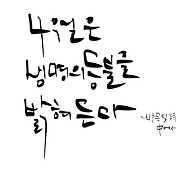 4월은
생명의 등불을
밝혀 든다
-박목월 詩
中에서